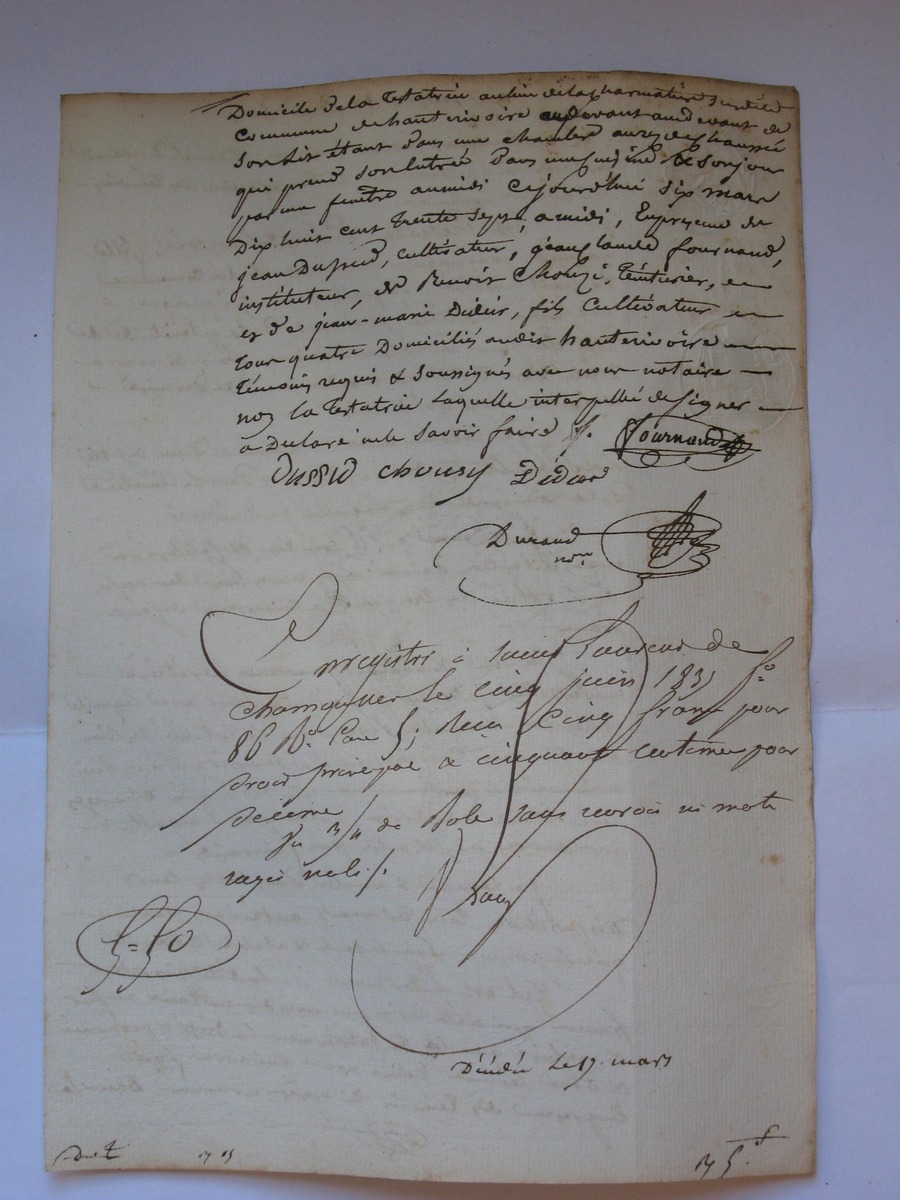 Domicile de la testatrice au lieu de la Charmatière susdite
Commune de hauterivoire au devant de
son lit étant dans une chambre au rez de chaussée
qui prend son entrée dans une cuisine & son jour
par une fenêtre au midi Cejourd'hui six mars
dix huit cent trente sept, à midi, En présence de
jean Dussud, cultivateur, jean claude fournand,
instituteur, de Benoit Chouzi, teinturier,
et de jean-marie Didier, fils Cultivateur
tous quatre Domiciliés audit hauterivoire
témoins requis & soussignés avec nous notaire
non la testatrice laquelle interpellée de signer
a Déclaré ne le savoir faire ./.
Fournand
Dussud chousy Didier
Durand
nore
Enregistré à saint Laurent de
chamousset le cinq juin 183 fo
86 Ro Case 5; Reçu Cinq francs pour
droit principal & cinquante centimes pour
décime
3/4 de Role sans renvoi ni mots
rayés nuls ./.
f=fo
Décédée Le 17 mars